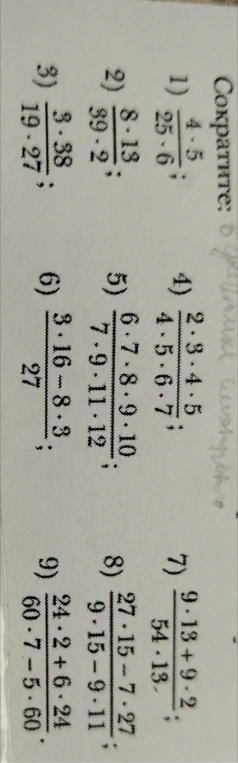 Сократите:
1) \frac{4 · 5}{25 · 6};
2) \frac{8 · 13}{39 · 2};
3) \frac{3 · 38}{19 · 27};
4) \frac{2 · 3 · 4 · 5}{4 · 5 · 6 · 7};
5) \frac{6 · 7 · 8 · 9 · 10}{7 · 9 · 11 · 12};
6) \frac{3 · 16 - 8 · 3}{27};
7) \frac{9 · 13 + 9 · 2}{54 · 13};
8) \frac{27 · 15 - 7 · 27}{9 · 15 - 9 · 11};
9) \frac{24 · 2 + 6 · 24}{60 · 7 - 5 · 60}.